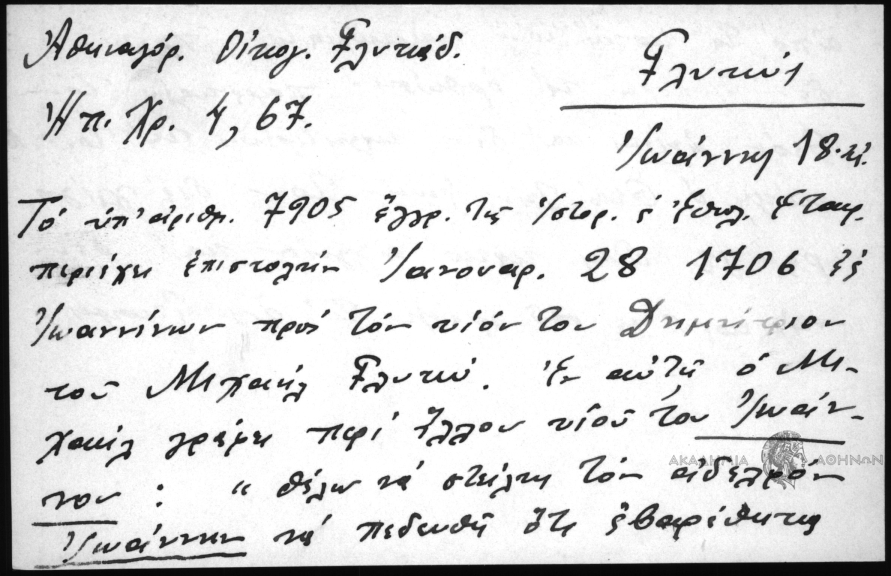 Ἀθηναγόρ. Οἰκογ. Γλυκάδ.
Γλυκύς
Ἠπ. Χρ. 4, 67.
Ἰωάννης 18. αἰ.
Τό ὑπ' ἀριθμ. 7905 ἔγγρ. τῆς Ἱστορ. & Ἐθνολ. Ἑταιρ.
περιέχει ἐπιστολήν Ἰανουαρ. 28 1706 ἐξ
Ἰωαννίνων πρός τόν υἱόν του Δημήτριον
τοῦ Μιχαήλ Γλυκύ. Ἐν αὐτῇ ὁ Μι-
χαήλ γράφει περί ἄλλου υἱοῦ του Ἰωάν-
νου : " θέλω νά στείλῃς τόν ἀδελφόν
Ἰωάννην νά πεδευθῇ ὅτι ἐβαρέθηκα
ΑΚΑΔΗΜΙΑ ΑΘΗΝΩΝ